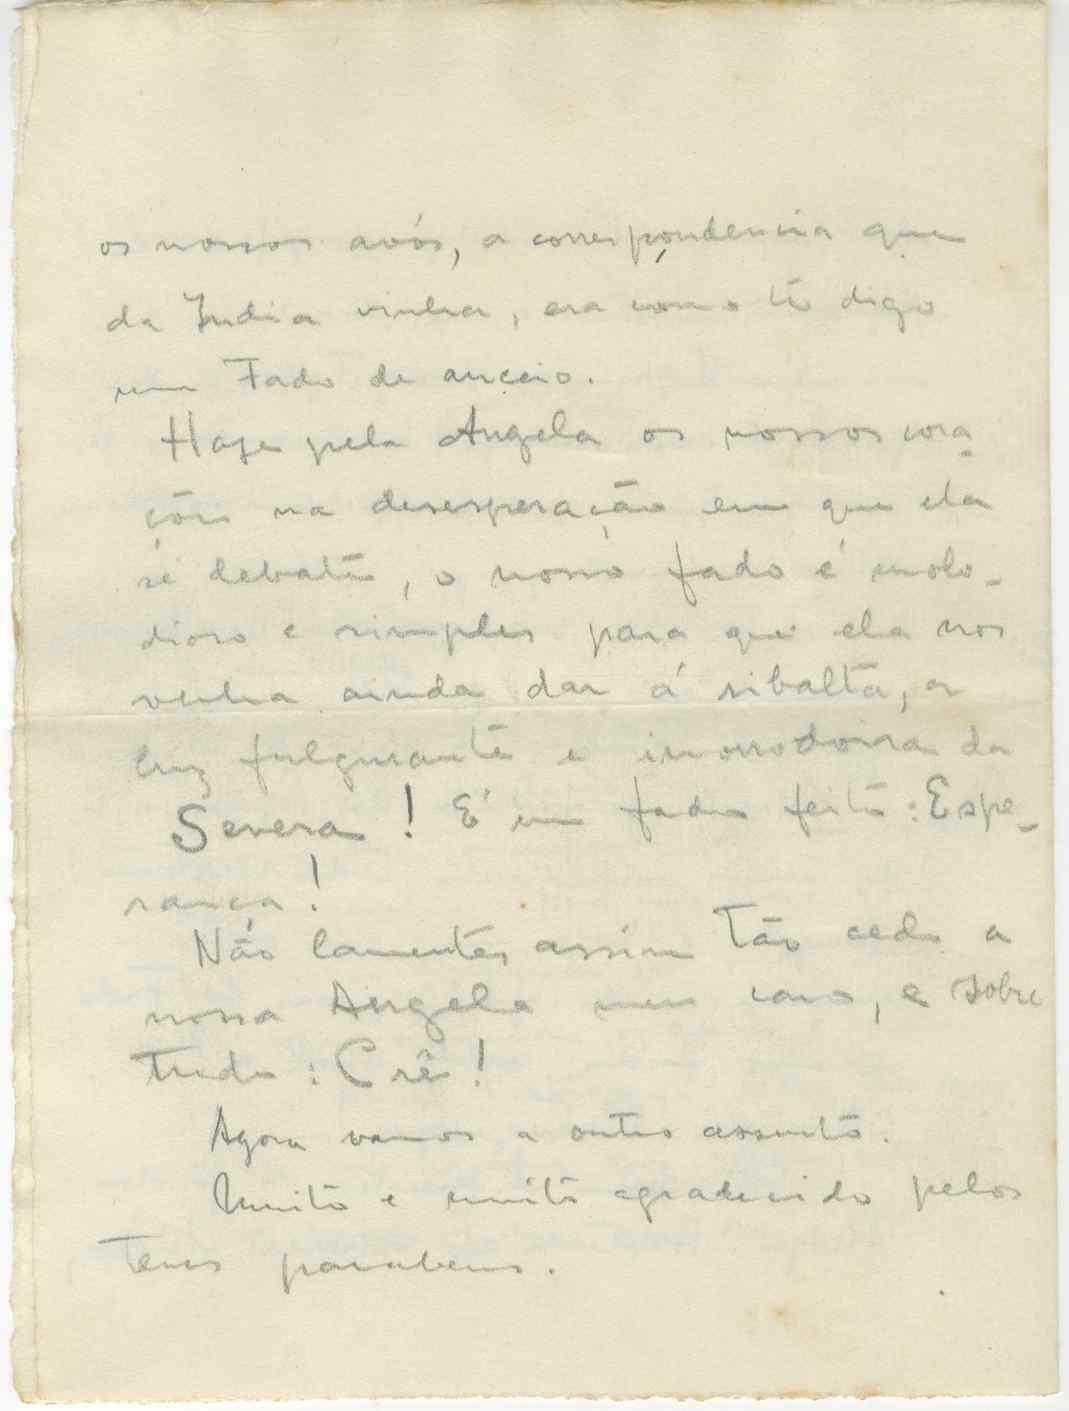 os nossos avós, a correspondencia que
da India vinha, era como te digo
um Fado de anceio.
Hoje pela Angela os nossos cora-
ções na desesperação em que ela
se debate, o nosso fado é molo-
dioso e simples para que ela nos
venha ainda dar á ribalta, a
luz fulgurante e da
Severa! É um fado feito: Espe-
rança!
Não lamentes assim tão cedo a
nossa Angela meu caro, e sobre
tudo: Crê!
Agora vamos a outro assunto.
Muito e muito agradecido pelos
teus parabens.